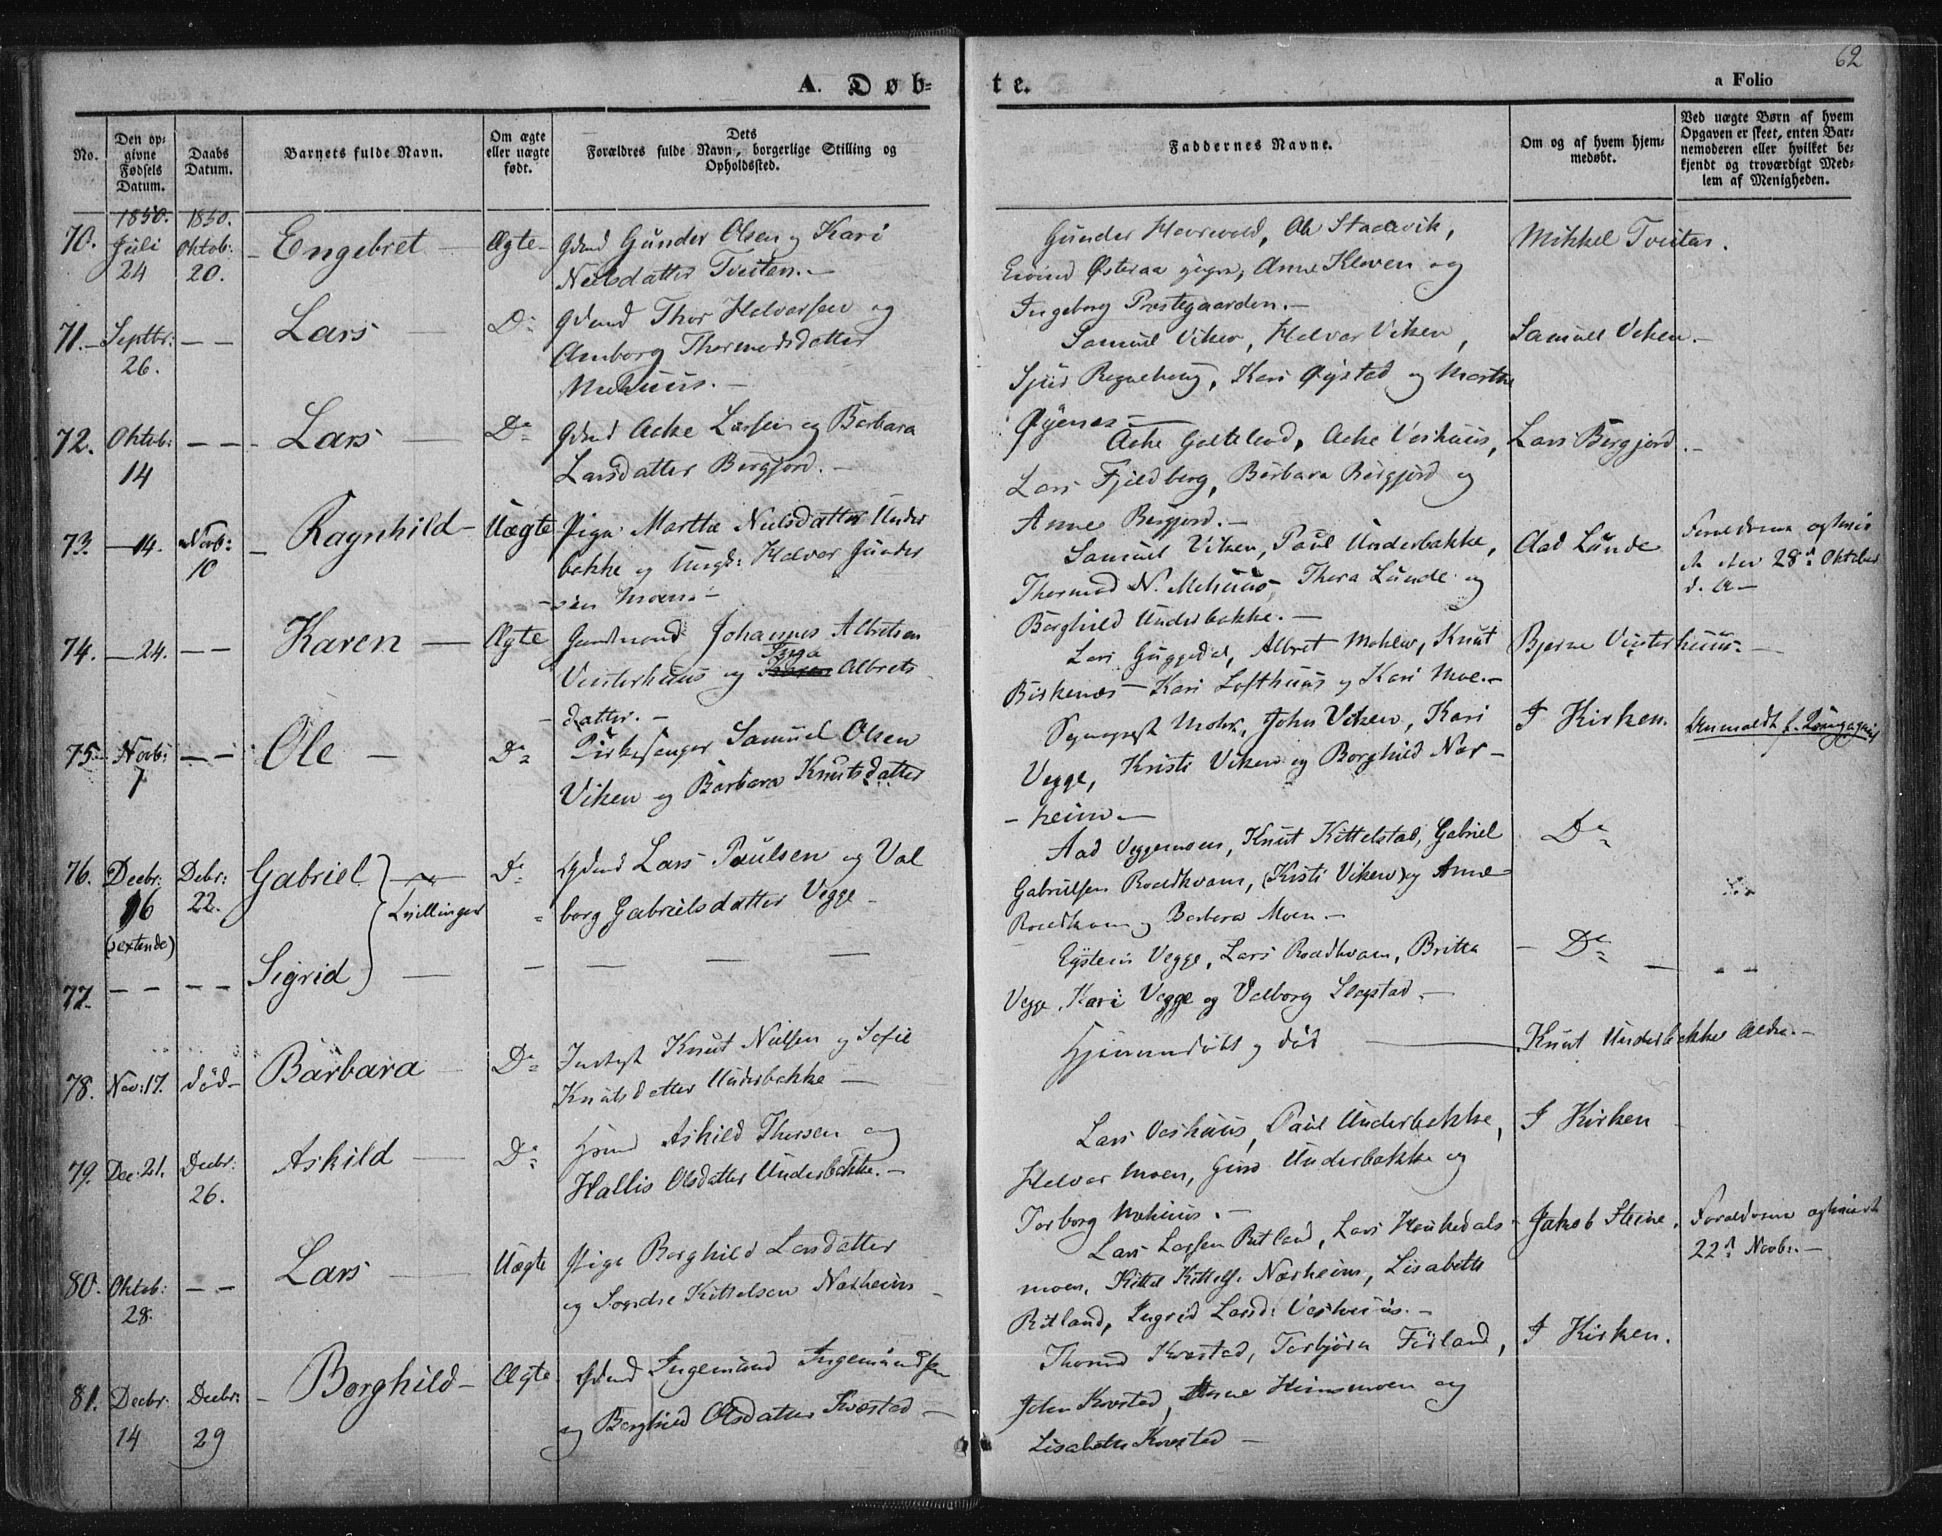 62
A. Døb=
te.
a Folio
No.
Den op-
givne
Fødsels
Datum.
Daabs
Datum.
Barnets fulde Navn.
Om ægte
eller uægte
født.
Dets
Forældres fulde Navn, borgerlige Stilling og
Opholdssted.
Faddernes Navne.
Om og af hvem hjem-
medøbt.
Ved uægte Børn af hvem
Opgaven er skeet, enten Bar-
nemoderen eller hvilket be-
kjendt og troværdigt Med-
lem af Menigheden.
1850. 1850.
70. Juli 24 Oktob: 20. Engebret Ægte
Gdmd Gunder Olsen og Kari
Neilsdatter Tveiten.
Gunder Haarvold, Ole Stadevik,
Eivind Østeraa, Anne Kleven og
Ingeborg Præstegaarden.
Mikkel Tveiten.
71. Septbr: 26. Lars Do
Gdmd Thor Halvorsen og
Thormodsdatter
Mehuus.
Samuel Viken, Halvor Viken,
Sjur Regneberg, Kari Øystad og Marthe
Øyenes
Samuel Viken
72. Oktob: 14 Lars Do
Gdmd Larsen og Barbara
Larsdatter Bergjord.
Veshuus,
Lars Fjeldberg, Barbara Bergjord og
Anne Bergjord.
Lars Bergjord
73. 14. Novb: 10 Ragnhild Uægte
Pige Marthe Neilsdatter Under
bakke og Ungk: Halvor Gunder
sen Moen
Samuel Viken, Paul Underbakke,
Thormod N. Mehuus, Thora Lunde og
Borghild Underbakke.
Aad Lunde
Forældrene
den 28d Oktober
d. A
74. 24. Karen Ægte
Gaardmand Johannes Albretsen
Vinterhuus og Inga Albrets
datter.
Lars Guggedal, Albret Mohlen, Knut
Birkenes Kari Lofthuus og Kari Moe.
Bjerne Vinterhuus
75. Novb: 7 Ole Do
Kirkesanger Samuel Olsen
Viken og Barbara Knutsdatter
Mohr, John Viken, Kari
Vegge, Kristi Viken og Borghild Nor-
heim
I Kirken.
76. Decbr: 16 (sextende) Debr: 22. Gabriel Do
Tvillinger
Gdmd Lars Paulsen og Val
borg Gabrielsdatter Vegge
Aad Veggemoen, Knut Kittelstad, Gabriel
Gabrielsen Roaldkvam, (Kristi Viken) og Anne
Roaldkvam og Barbara Moen
Do
77. Sigrid
Eystein Vegge, Lars Roaldkvam, Britta
Vegge, Kari Vegge og Valborg Slogstad.
Do
78. Nov: 17. død Barbara Do
Indst Knut Nielsen og Sofie
Knutsdatter Underbakke
Hjemmedøbt og død
Knut Underbakke Aldre.
79. Dec: 21. Decbr: 26. Askild Do
Askild Thorsen og
Hallis Olsdatter Underbakke.
Lars Veshuus, Paul Underbakke,
Halvor Moen, Guro Underbakke og
Torborg Mehuus.
I Kirken
80. Oktob: 28. Lars Uægte
Pige Borghild Larsdatter
og Sondre Kittelsen Norheim
Lars Larsen Ritland, Lars Haukedals
moen, Kittel Kittels: Norheim, Lisabeth
Ritland, Ingrid Larsd: Veshuus.
Jakob Steine.
Forældrene
22d Novb:
81. Decbr: 14 Decbr: 29 Borghild Ægte
Gdmd Ingemund Ingemundsen
og Borghild Olsdatter Kvæstad
Kvæstad, Torbjørn Førland,
John Kvæstad, Anne Heimsmoen og
Lisabeth Kvæstad
I Kirken.